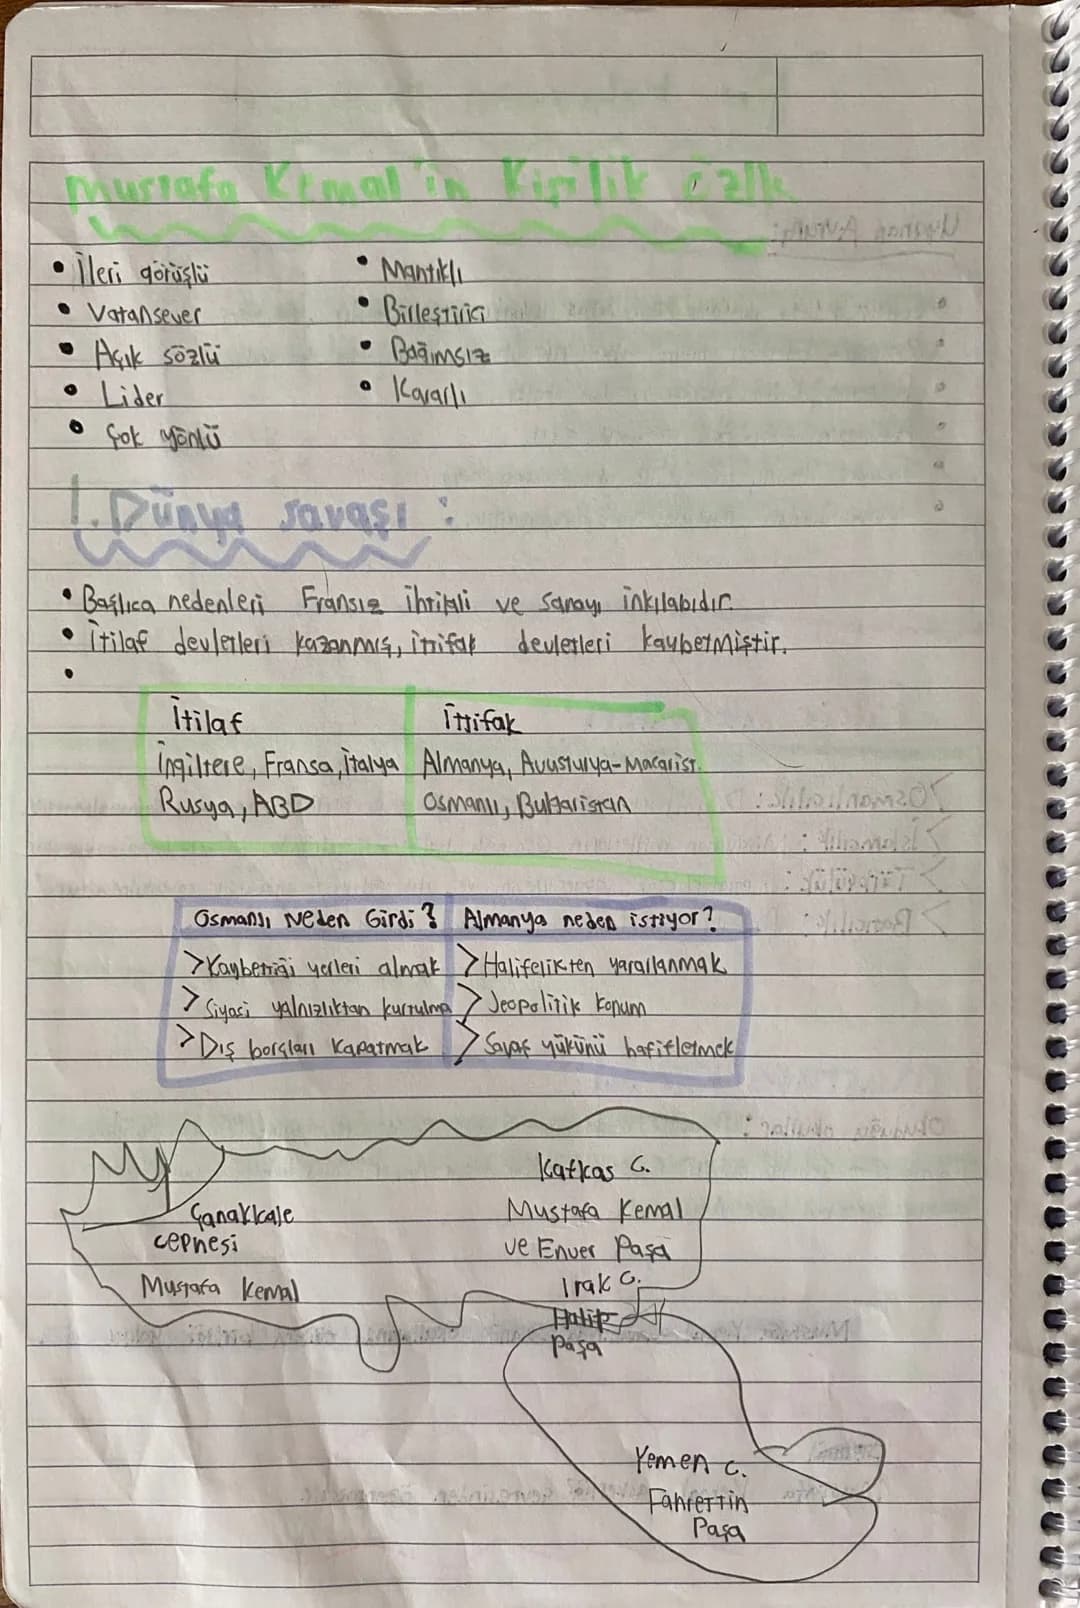 Mustafa Kemal'in Kişilik özlk
• İleri görüşlü
• Vatansever
• Açık sözlü
• Lider
• Çok yönlü
• Mantıklı
• Birleştirici
• Bağımsız
• Kararlı
1. Dünya savaşı :
• Başlıca nedenleri Fransız ihtilali ve Sanayı inkılabıdır.
• İtilaf devletleri kazanmış, ittifak devletleri kaybetmiştir.
•
İtilaf
İngiltere, Fransa, İtalya
Rusya, ABD
İttifak
Almanya, Avusturya-Macarist.
Osmanlı, Bulgaristan
Osmanlı Neden Girdi?
>Kaybettiği yerleri almak
> Siyasi yalnızlıktan kurtulma
> Dış borçları kapatmak
Almanya neden istiyor?
> Halifelikten yararlanmak
> Jeopolitik konum
> Savaş yükünü hafifletmek
Çanakkale
cephesi
Mustafa Kemal
Kafkas C.
Mustafa Kemal
ve Enver Paşa
Irak C.
Halil
Paşa
Yemen C.
Fahrettin
Paşa